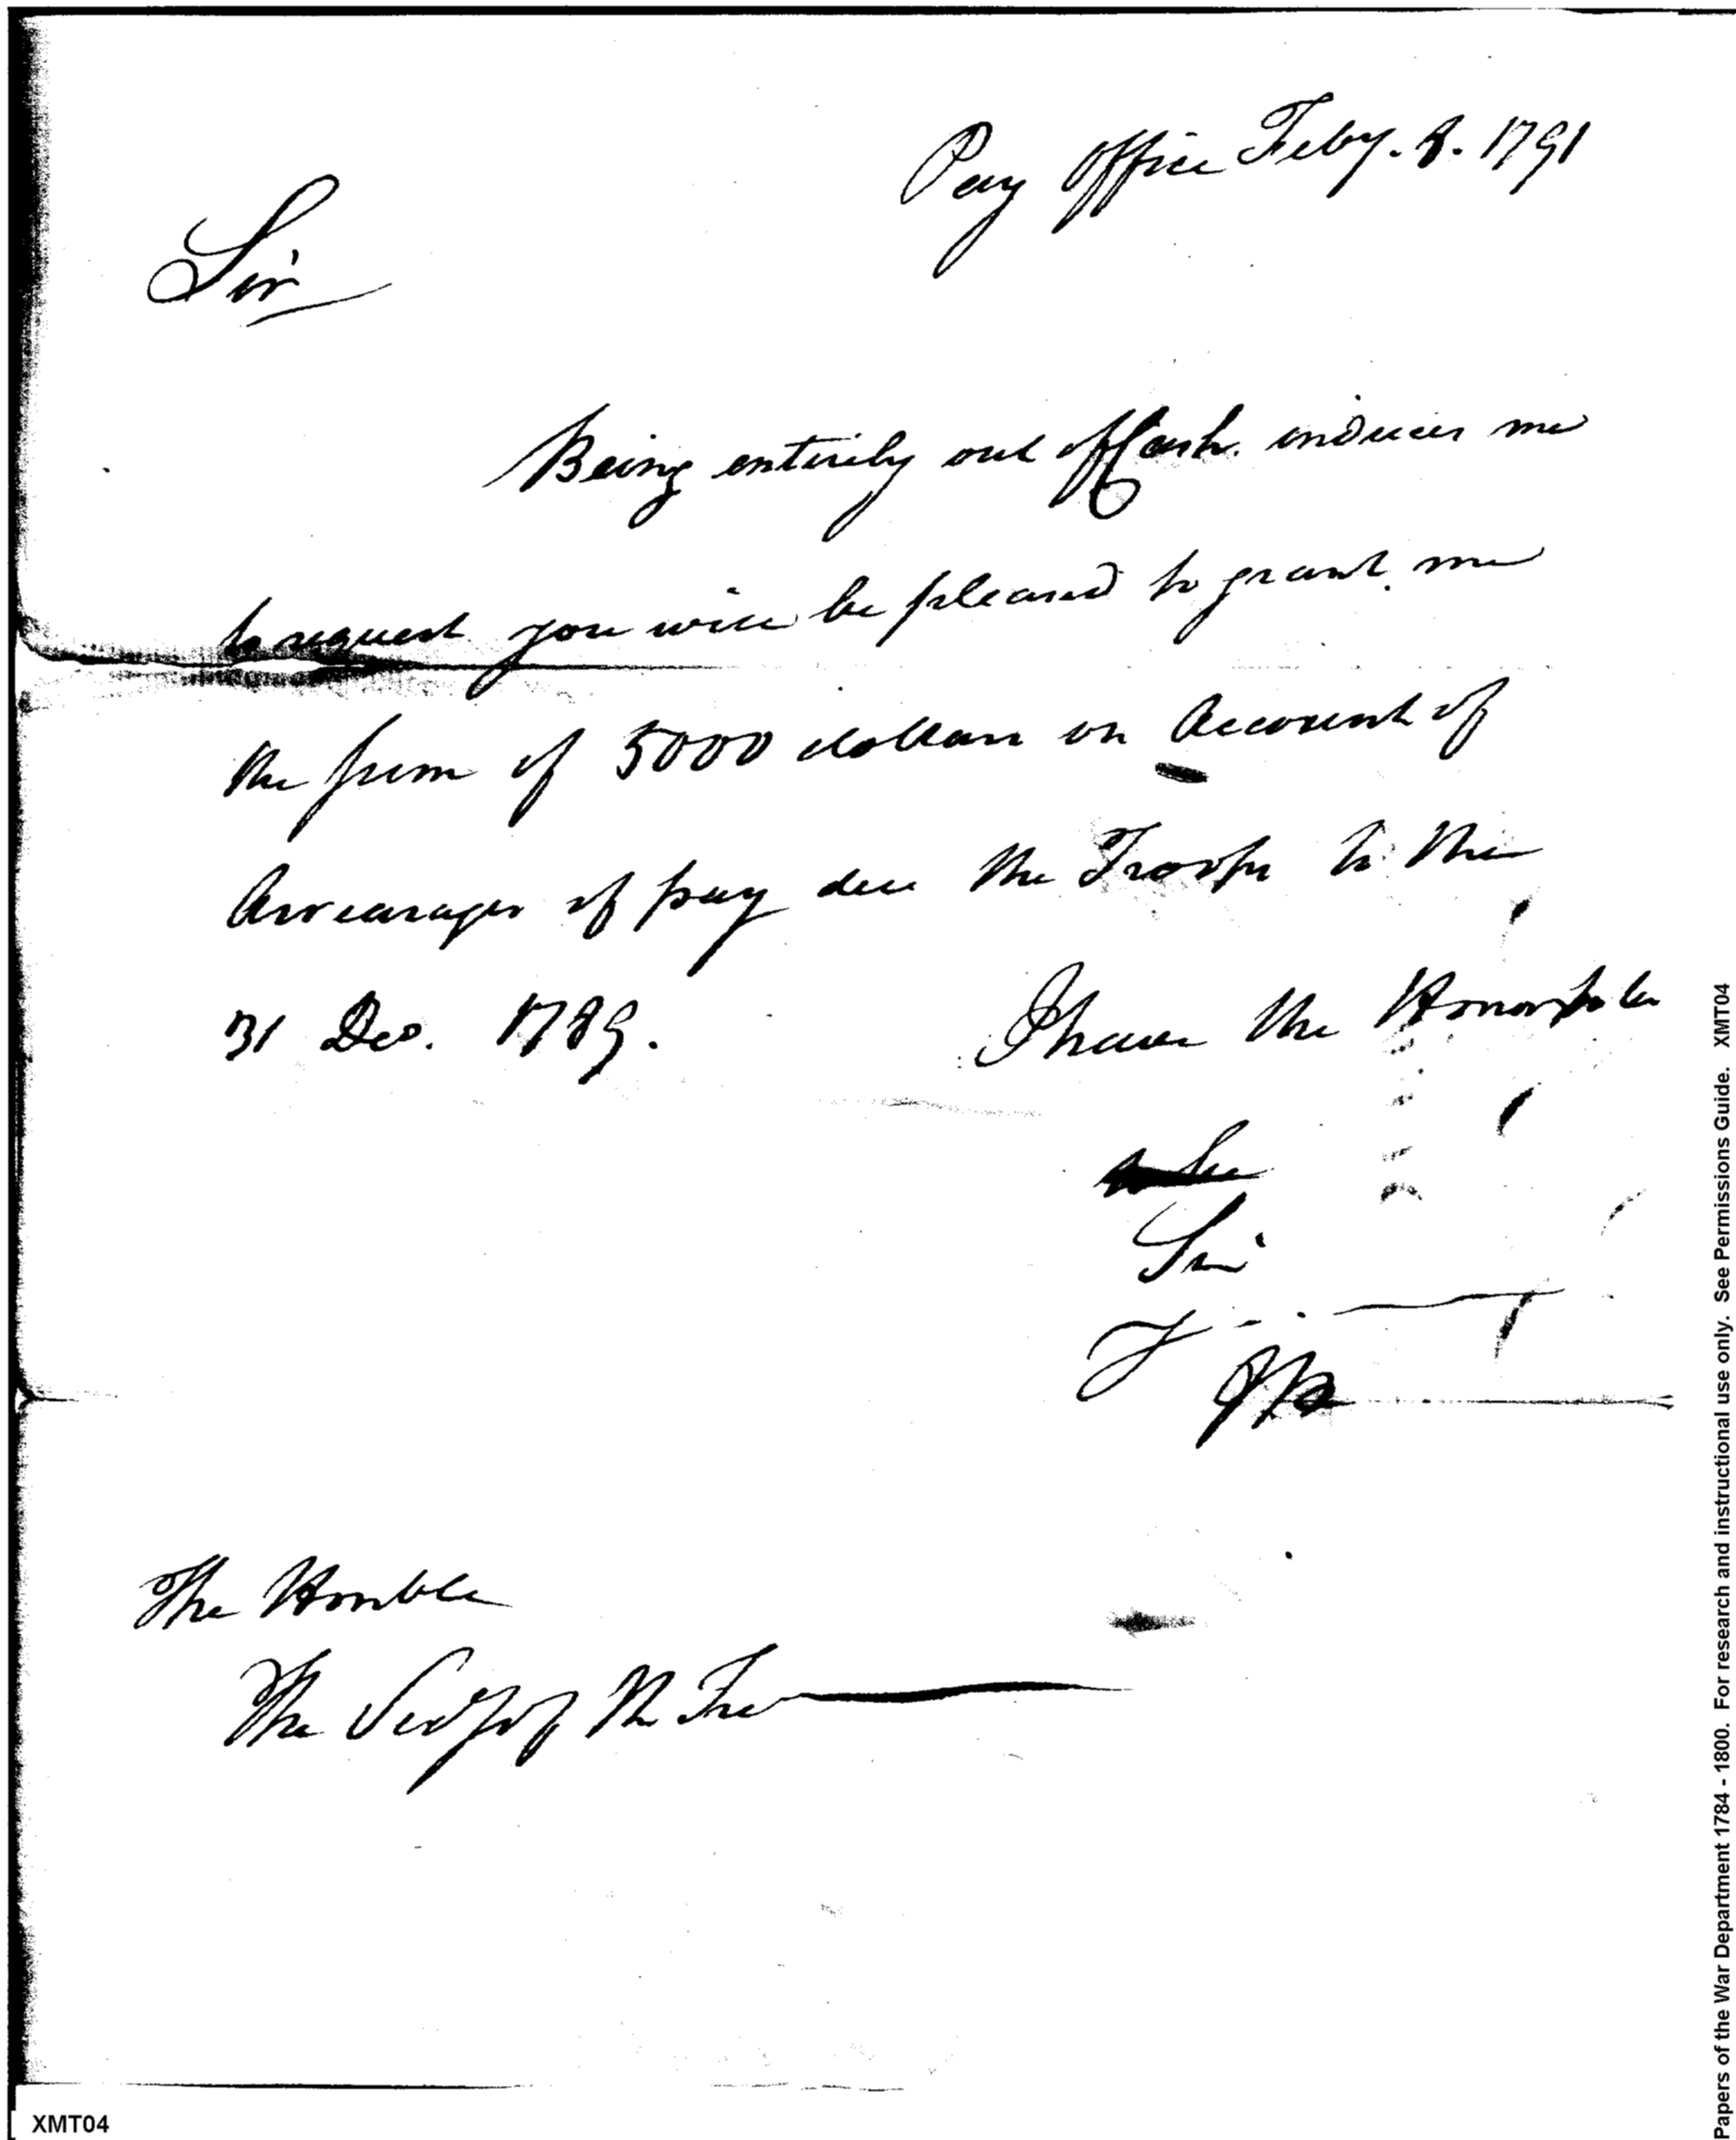 Pay Office Feby. 8. 1791
Sir
Being entirely out of Cash. induces me
to request you will be pleased to grant me
the sum of 5000 dollars on Account of
Arrearages of pay due the Troops to the
31 Dec. 1789.
I have the Honor to be
Sir
The Honble
The Secy of the Tre
XMT04
Papers of the War Department 1784 - 1800. For research and instructional use only. See Permissions Guide. XMT04